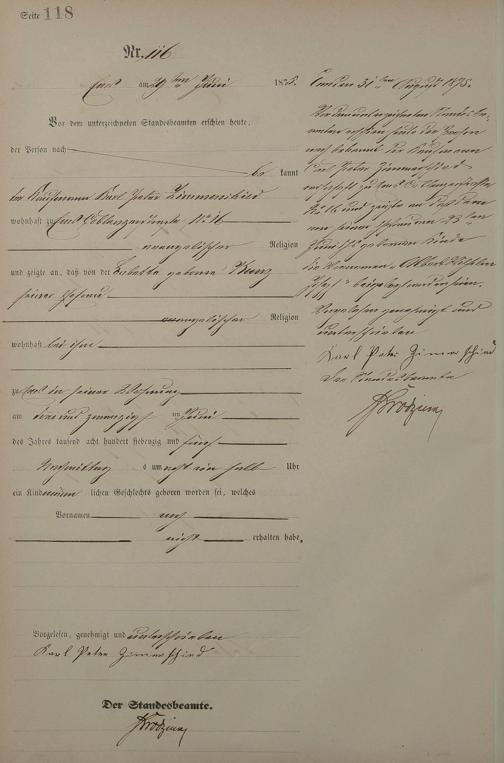 Seite 118
Nr. 116
Ems am 29ten Juni 1875.
Vor dem unterzeichneten Standesbeamten erschien heute,
der Person nach
be kannt
der Kaufmann Karl Peter Zimmerschied
wohnhaft zu Ems Coblenzerstraße No 16
evangelischer Religion
und zeigte an, daß von der Babette geborene Kunz
seiner Ehefrau
evangelischer Religion
wohnhaft bei ihm
zu Ems in seiner Wohnung
am drei und zwanzigsten Juni
des Jahres tausend acht hundert siebenzig und fünf
Nachmittags um acht ein halb Uhr
ein Kind männ lichen Geschlechts geboren worden sei, welches
Vornamen noch
nicht erhalten habe.
Vorgelesen, genehmigt und unterschrieben
Karl Peter Zimmerschied
Der Standesbeamte.
Ems den 31ten August 1875.
Vor dem unterzeichneten Standesbe-
amten erschien heute der Person
nach bekannt der Kaufmann
Karl Peter Zimmerschied
wohnhaft zu Ems Coblenzerstraße
No 16 und zeigte an daß dem
Juni geborenen Kinde
die Vornamen Albert
beigelegt worden seien.
Vorgelesen genehmigt und
unterschrieben
Karl Peter Zimmerschied
Der Standesbeamte